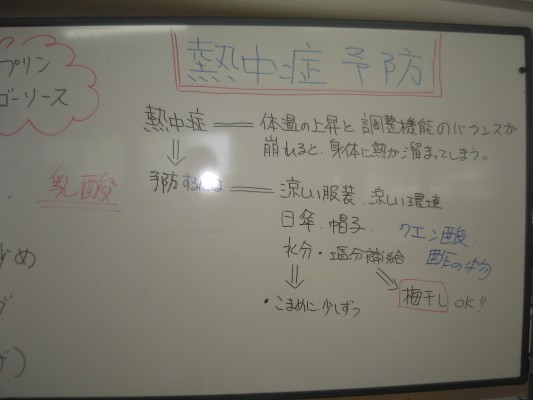 熱中症 予防
プリン
ゴーソース
熱中症 = 体温の上昇と調整機能のバランスが
崩れると、身体に熱が溜まってしまう。
⇓
乳酸
予防するには = 涼しい服装 涼しい環境
日傘、帽子
水分・塩分補給
クエン酸
酢の物
⇓
・こまめに、少しずつ
梅干し OK!!
め